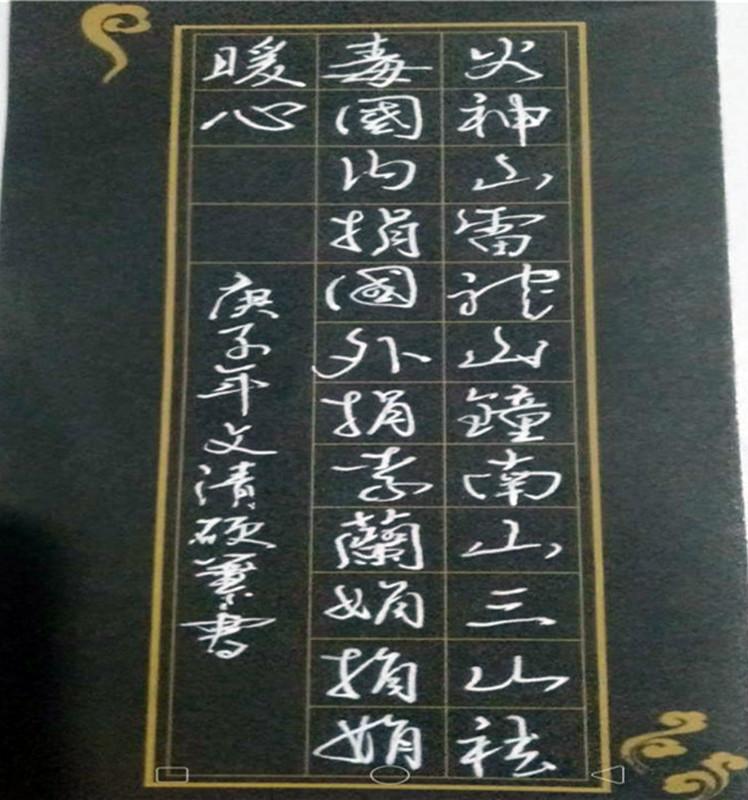 火神山雷神山鐘南山三山祛
毒國内捐國外捐李蘭娟捐娟
暖心
庚子年文清硬筆書